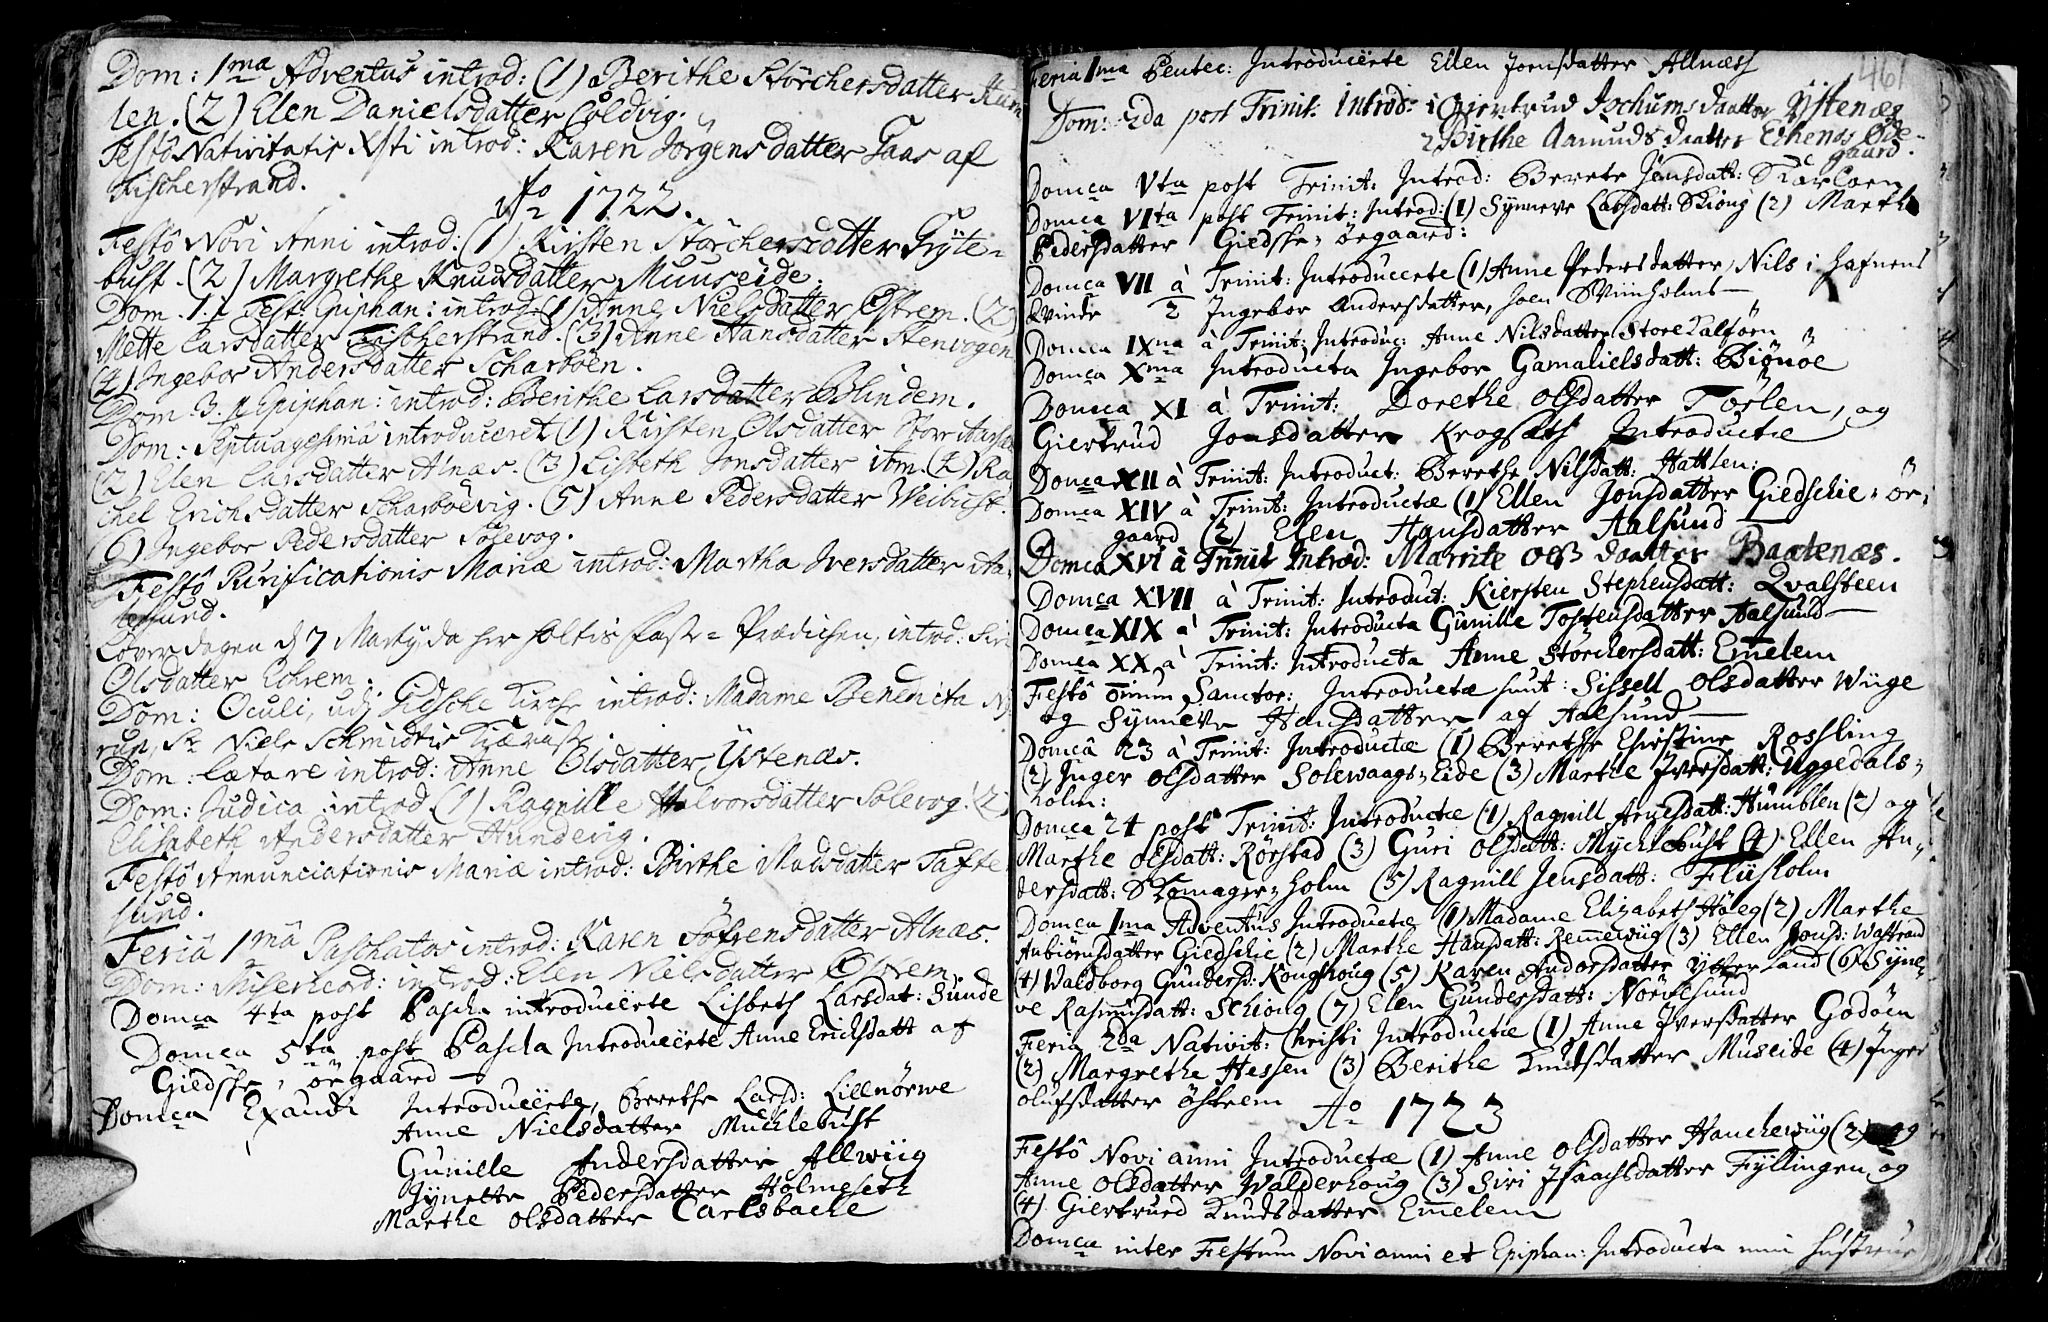 Dom: 1ma Adventus introd: (1) Berithe Störchersdatter Hum
len. (2) Elen Danielsdatter Coldvig.
Festô Nativitatis Xsti introd: Karen Jörgensdatter Gaas af
Fischerstrand.
Ao 1722.
Festô Novi Anni introd: (1) Kirsten Störchersdatter Gryte-
bust. (2) Margrethe Knudsdatter Muuseide.
Dom. 1. p Fest: Epiphan: introd: (1) Anne Nielsdatter Östrem. (2)
Mette Larsdatter Fischerstrand. (3) Anne Hansdatter Stenvogen
(4) Ingebor Andersdatter Scharböen.
Dom 3. p Epiphan: introd: Berithe Larsdatter Blindem.
Dom: Septuagesimâ introduceret (1) Kirsten Olsdatter Store
(2) Elen Larsdatter Alnæs. (3) Lisbeth Jonsdatter ibm. (4) Ra
chel Erichsdatter Scharböevig. (5) Anne Pedersdatter Weibust.
(6) Ingebor Pedersdatter Solevog.
Festô Purificationis Mariæ introd: Martha Iversdatter Aa-
lesund.
Löverdagen d 7 Martij da her holtis Faste-Prædichen, introd: Siri
Olsdatter Echrem.
Dom: Oculi, udj Gidsche Kirche introd: Madame Benedicta Ny
rup, Sr Niels Schmidtis Kiæriste.
Dom: Lætare introd: Anne Olsdatter Ystenæs.
Dom: Judica introd (1) Ragnille Halvorsdatter Solevog. (2)
Elisabeth Andersdatter Hundevig.
Festô Annunciationis Mariæ introd: Birthe Madsdatter Tafte-
sund.
Feriâ 1mâ Paschatos introd: Karen Söfrensdatter Alnæs.
Dom: Misericord: introd: Elen Nielsdatter Östrem.
Domca 4ta post Pascha introducerte Lisbeth Larsdat: Sunde
Domca 5ta post Pascha Introducerte Anne Erichsdatt af
Giedske, öegaard
Domca Exaudi Introducerte, Berethe Larsd: Lillnörwe
Anne Nielsdatter Mucklebust
Gunille Andersdatter Allwiig
Synette Pedersdatter Holmeseth
Marthe Olsdatter Carlsbache
461
Feria 1ma Pentec: Introducerte Ellen Joensdatter Allnæss
Dom: 2da post Trinit: Introd: 1 Giertrud Jochumsdaatter Ystenæs
2 Birthe Aamundsdaatter Ehenes Öde-
gaard.
Domca Vta post Trinit: Introd: Berete Jonsdatt: Skarboen
Domca VIta post Trinit: Introd: (1) Synneve Larsdatt: Skiong (2) Marthe
Pedersdatter Giedske, öegaard:
Domca VII à Trinit: Introducerte (1) Anne Pedersdatter, Nils i Hafnens
Kvinde 2 Ingebor Andersdatter, Joen Sviinholms
Domca IXna à Trinit: Introduc: Anne Nilsdatter Store Kalföen
Domca Xma Introducta Ingebor Gamalielsdatt: Biönöe
Domca XI à Trinit: Dorethe Olsdatter Törlen, og
Giertrud Jonsdatter Krogsæth Introductæ
Domca XII à Trinit: Introduct: Berethe Nilsdatt: Hattlen:
Domca XIV à Trinit: Introductæ (1) Ellen Jonsdatter Giedschie, ör-
gaard (2) Elen Hansdatter Aalsund
Domca XVI à Trinit Introd: Marrite Olss daatter Baatenæs.
Domca XVII à Trinit: Introduct: Kiersten Stephensdatt: Qvalsteen
Domca XIX à Trinit: Introducta Gunille Tostensdatter Aalsund
Domca XX à Trinit: Introducta Anne Störchersdatt: Emelem
Festô omium Sanctor: Introductæ sunt: Sissell Olsdatter Wiige
og Synneve Hansdatter af Aalsund
Domcâ 23 à Trinit: Introductæ (1) Berethe Christine Rossling
(2) Inger Olsdatter Solewaags-Eide (3) Marthe Iversdatt: Uggedals-
holm:
Domca 24 post Trinit: Introductæ (1) Ragnill Arnesdatt: Humblen (2) og
Marthe Olsdatt: Rörstad (3) Guri Olsdatt: Mychlebust (4) Ellen An-
dersdatt: Skomagerholm (5) Ragnill Jensdatt: Fliisholm
Domca 1ma Adventus Introductæ (1) Madame Elizabeth Höeg (2) Marthe
Anbiörnsdatter Giedschie (2) Marthe Hansdatt: Remmewiig (3) Ellen Jonsd: Wastrand
(4) Waldborg Gundersd: Kongshoug (5) Karen Andorsdatter Ytterland (6) Syne-
ve Rasmusdatt: Schiong (7) Elen Gundersdatt: Nörvesund
Feria 2da Nativit: Christi Introductæ (1) Anne Iversdatter Godöen
(2) Margrethe Hessen (3) Berithe Knudsdatter Museide (4) Inger
Olufsdatter Östrem
Ao 1723
Festô Novi anni Introductæ (1) Anne Olsdatter Hauchewiig (2) og
Anne Olsdatter Walderhoug (3) Siri Isaachsdatter Fyllingen og
(4) Giertrued Knudsdatter Emelem
Domca inter Festum Novi anni et Epiphan: Introducta min hustrue